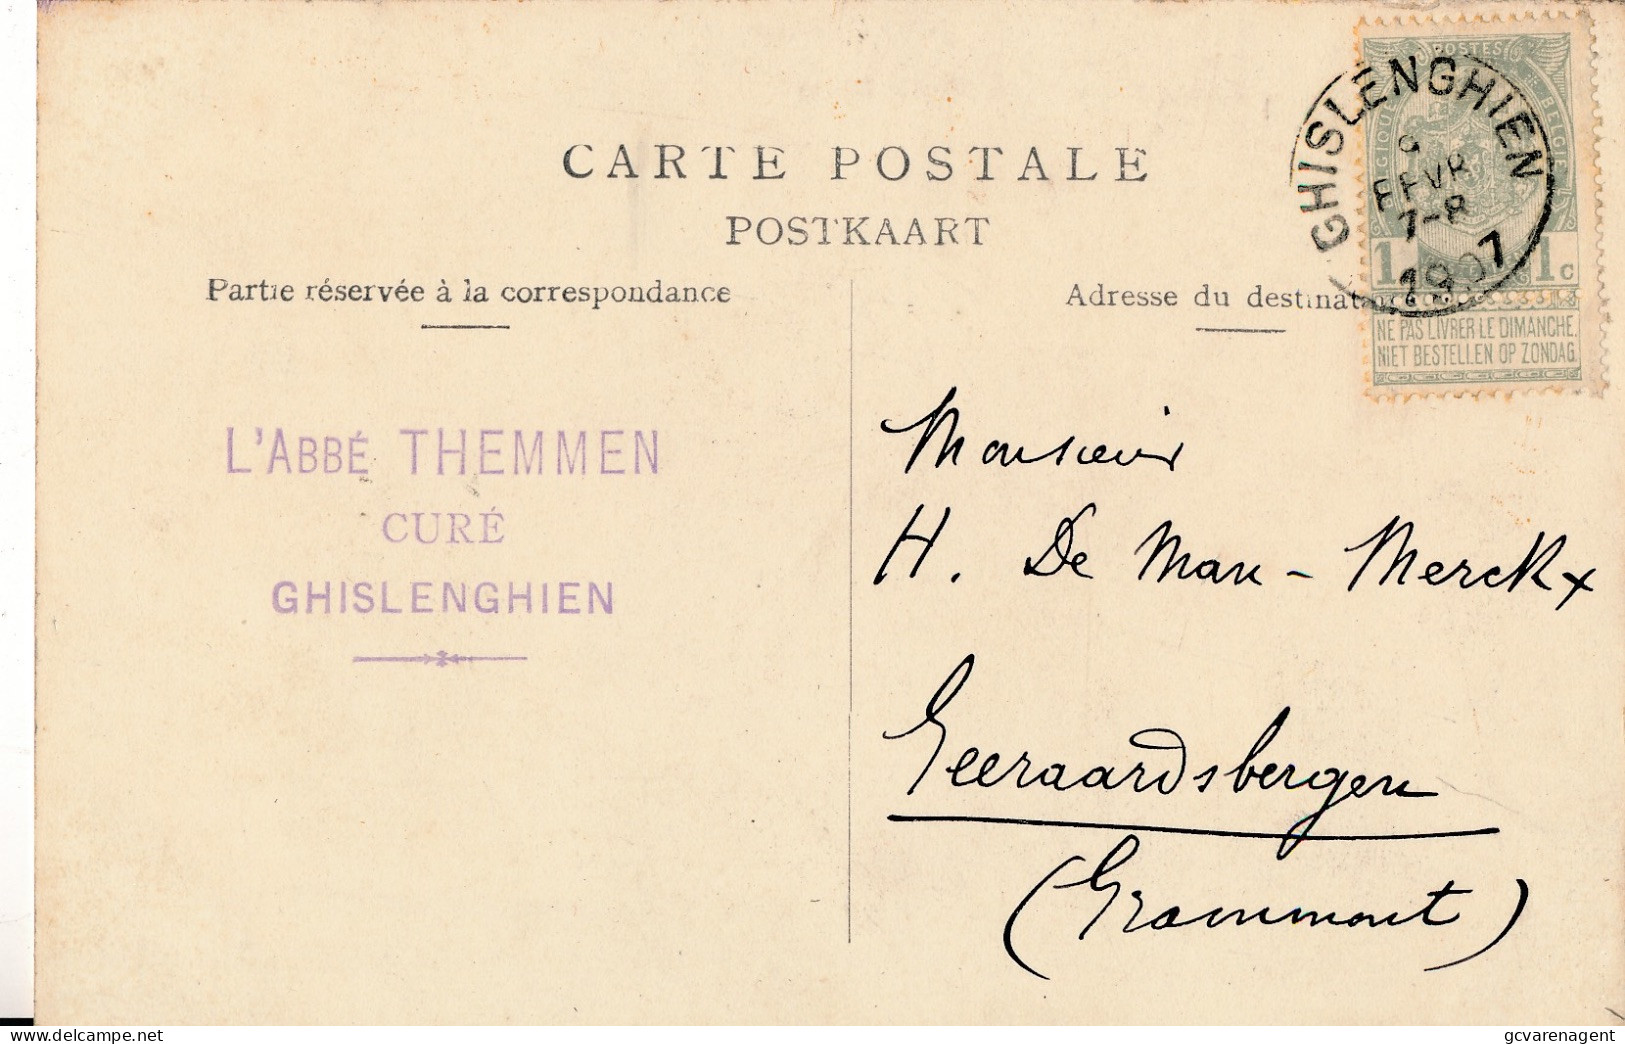 CARTE POSTALE
POSTKAART
Partie réservée à la correspondance
Adresse du destinataire
POSTES
BELGIQUE BELGIE
GHISLENGHIEN
FEVR
7-8
1907
1 1c
NE PAS LIVRER LE DIMANCHE.
NIET BESTELLEN OP ZONDAG.
L'ABBÉ THEMMEN
CURÉ
GHISLENGHIEN
Monsieur
H. De Man - Merckx
Geeraardsbergen
(Grammont)
delcampe.net
gcvarenagent